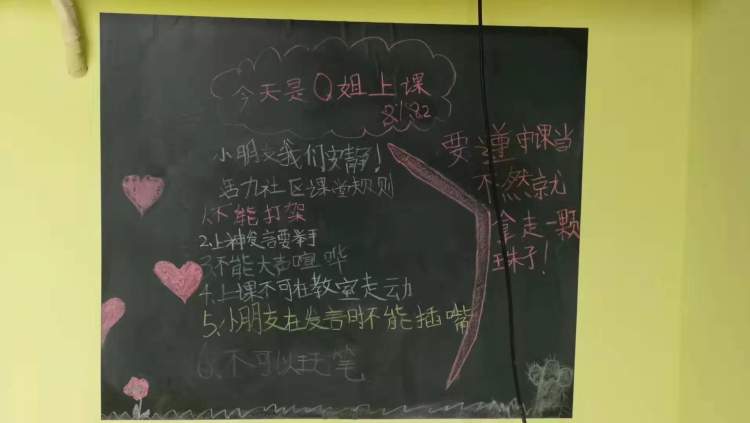 今天是O姐上课
小朋友我们安静!
活力社区课堂规则
1.不能打架
2.上课发言要举手
3.不能大声喧哗
4.上课不可在教室走动
5.小朋友在发言时不能插嘴
6.不可以玩笔
要遵守课当
不然就
拿走一颗
珠子!